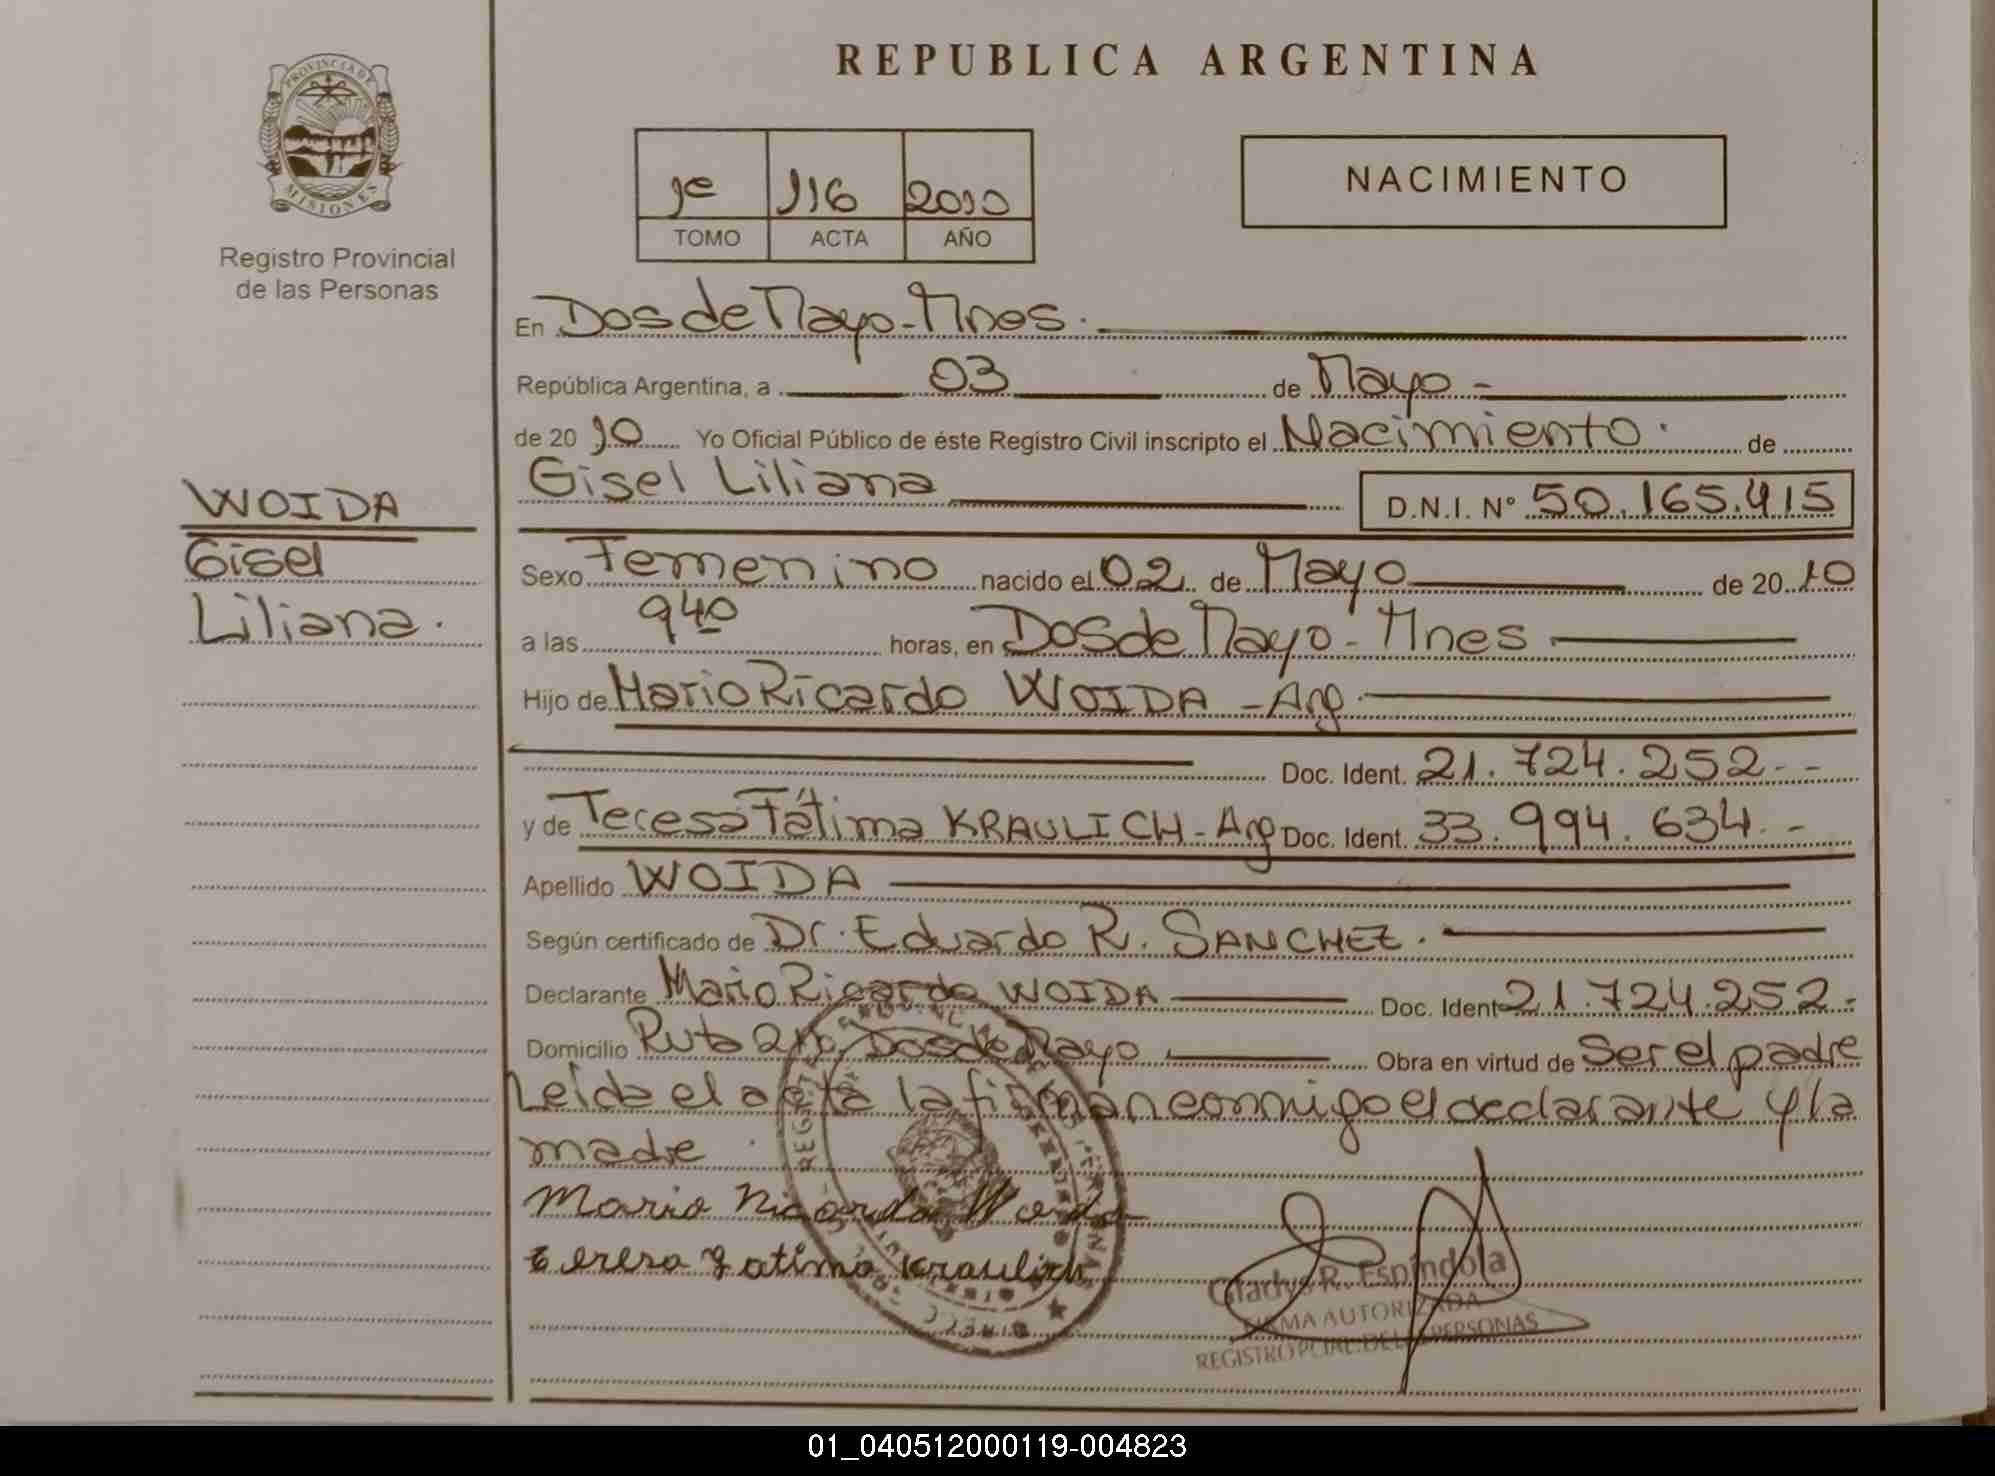 PROVINCIA DE
MISIONES
Registro Provincial
de las Personas
WOIDA
Gisel
Liliana.
REPUBLICA ARGENTINA
1º 116 2010
TOMO ACTA AÑO
NACIMIENTO
En Dos de Mayo - Mnes.
República Argentina, a 03 de Mayo -
de 20 10 Yo Oficial Público de éste Registro Civil inscripto el Nacimiento. de
Gisel Liliana D.N.I. Nº 50.165.415
Sexo Femenino nacido el 02 de Mayo de 20 10
a las 9 40 horas, en Dos de Mayo - Mnes
Hijo de Mario Ricardo WOIDA - Arg.
Doc. Ident. 21.724.252.-
y de Teresa Fátima KRAULICH - Arg Doc. Ident. 33.994.634.-
Apellido WOIDA
Según certificado de Dr. Eduardo R. SANCHEZ.
Declarante Mario Ricardo WOIDA Doc. Ident 21.724.252.-
Domicilio Ruta Dos de Mayo Obra en virtud de Ser el padre
Leída el acta la firman conmigo el declarante y la
madre
Mario Ricardo Woida
Teresa Fatima Kraulich
Gladys R. Espíndola
FIRMA AUTORIZADA
REGISTRO PCIAL. DE LAS PERSONAS
01_040512000119-004823